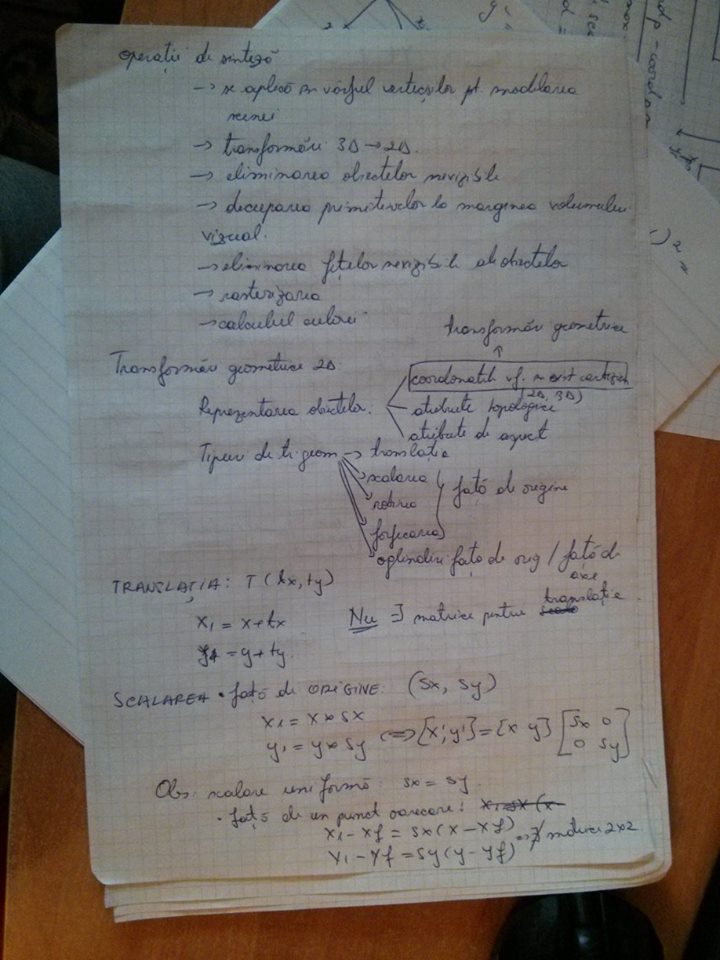 operații de sinteză
→ se aplică în vârful vertecșilor pt modelarea
scenei
→ transformări 3D → 2D.
→ eliminarea obiectelor nevizibile
→ decuparea primitivelor la marginea volumului
vizual.
→ eliminarea fețelor nevizibile ale obiectelor
→ rasterizarea
→ calculul culorii
transformări geometrice
Transformări geometrice 2D
coordonatele vf. în sist cartezian
(2D, 3D)
Reprezentarea obiectelor.
atribute topologice
atribute de aspect
Tipuri de tr. geom → translația
scalarea
rotirea
față de origine
forfecarea
oglindiri față de orig / față de
axe
TRANSLAȚIA: T(tx, ty)
x1 = x + tx
NU ∃ matrice pentru translație
y1 = y + ty.
SCALAREA • față de ORIGINE: (sx, sy)
x1 = x * sx
y1 = y * sy <=> [x', y'] = [x y] [sx 0
0 sy]
Obs: scalare uniformă: sx = sy.
• față de un punct oarecare:
x1 - xf = sx(x - xf)
y1 - yf = sy(y - yf) => ∄ matrice 2x2